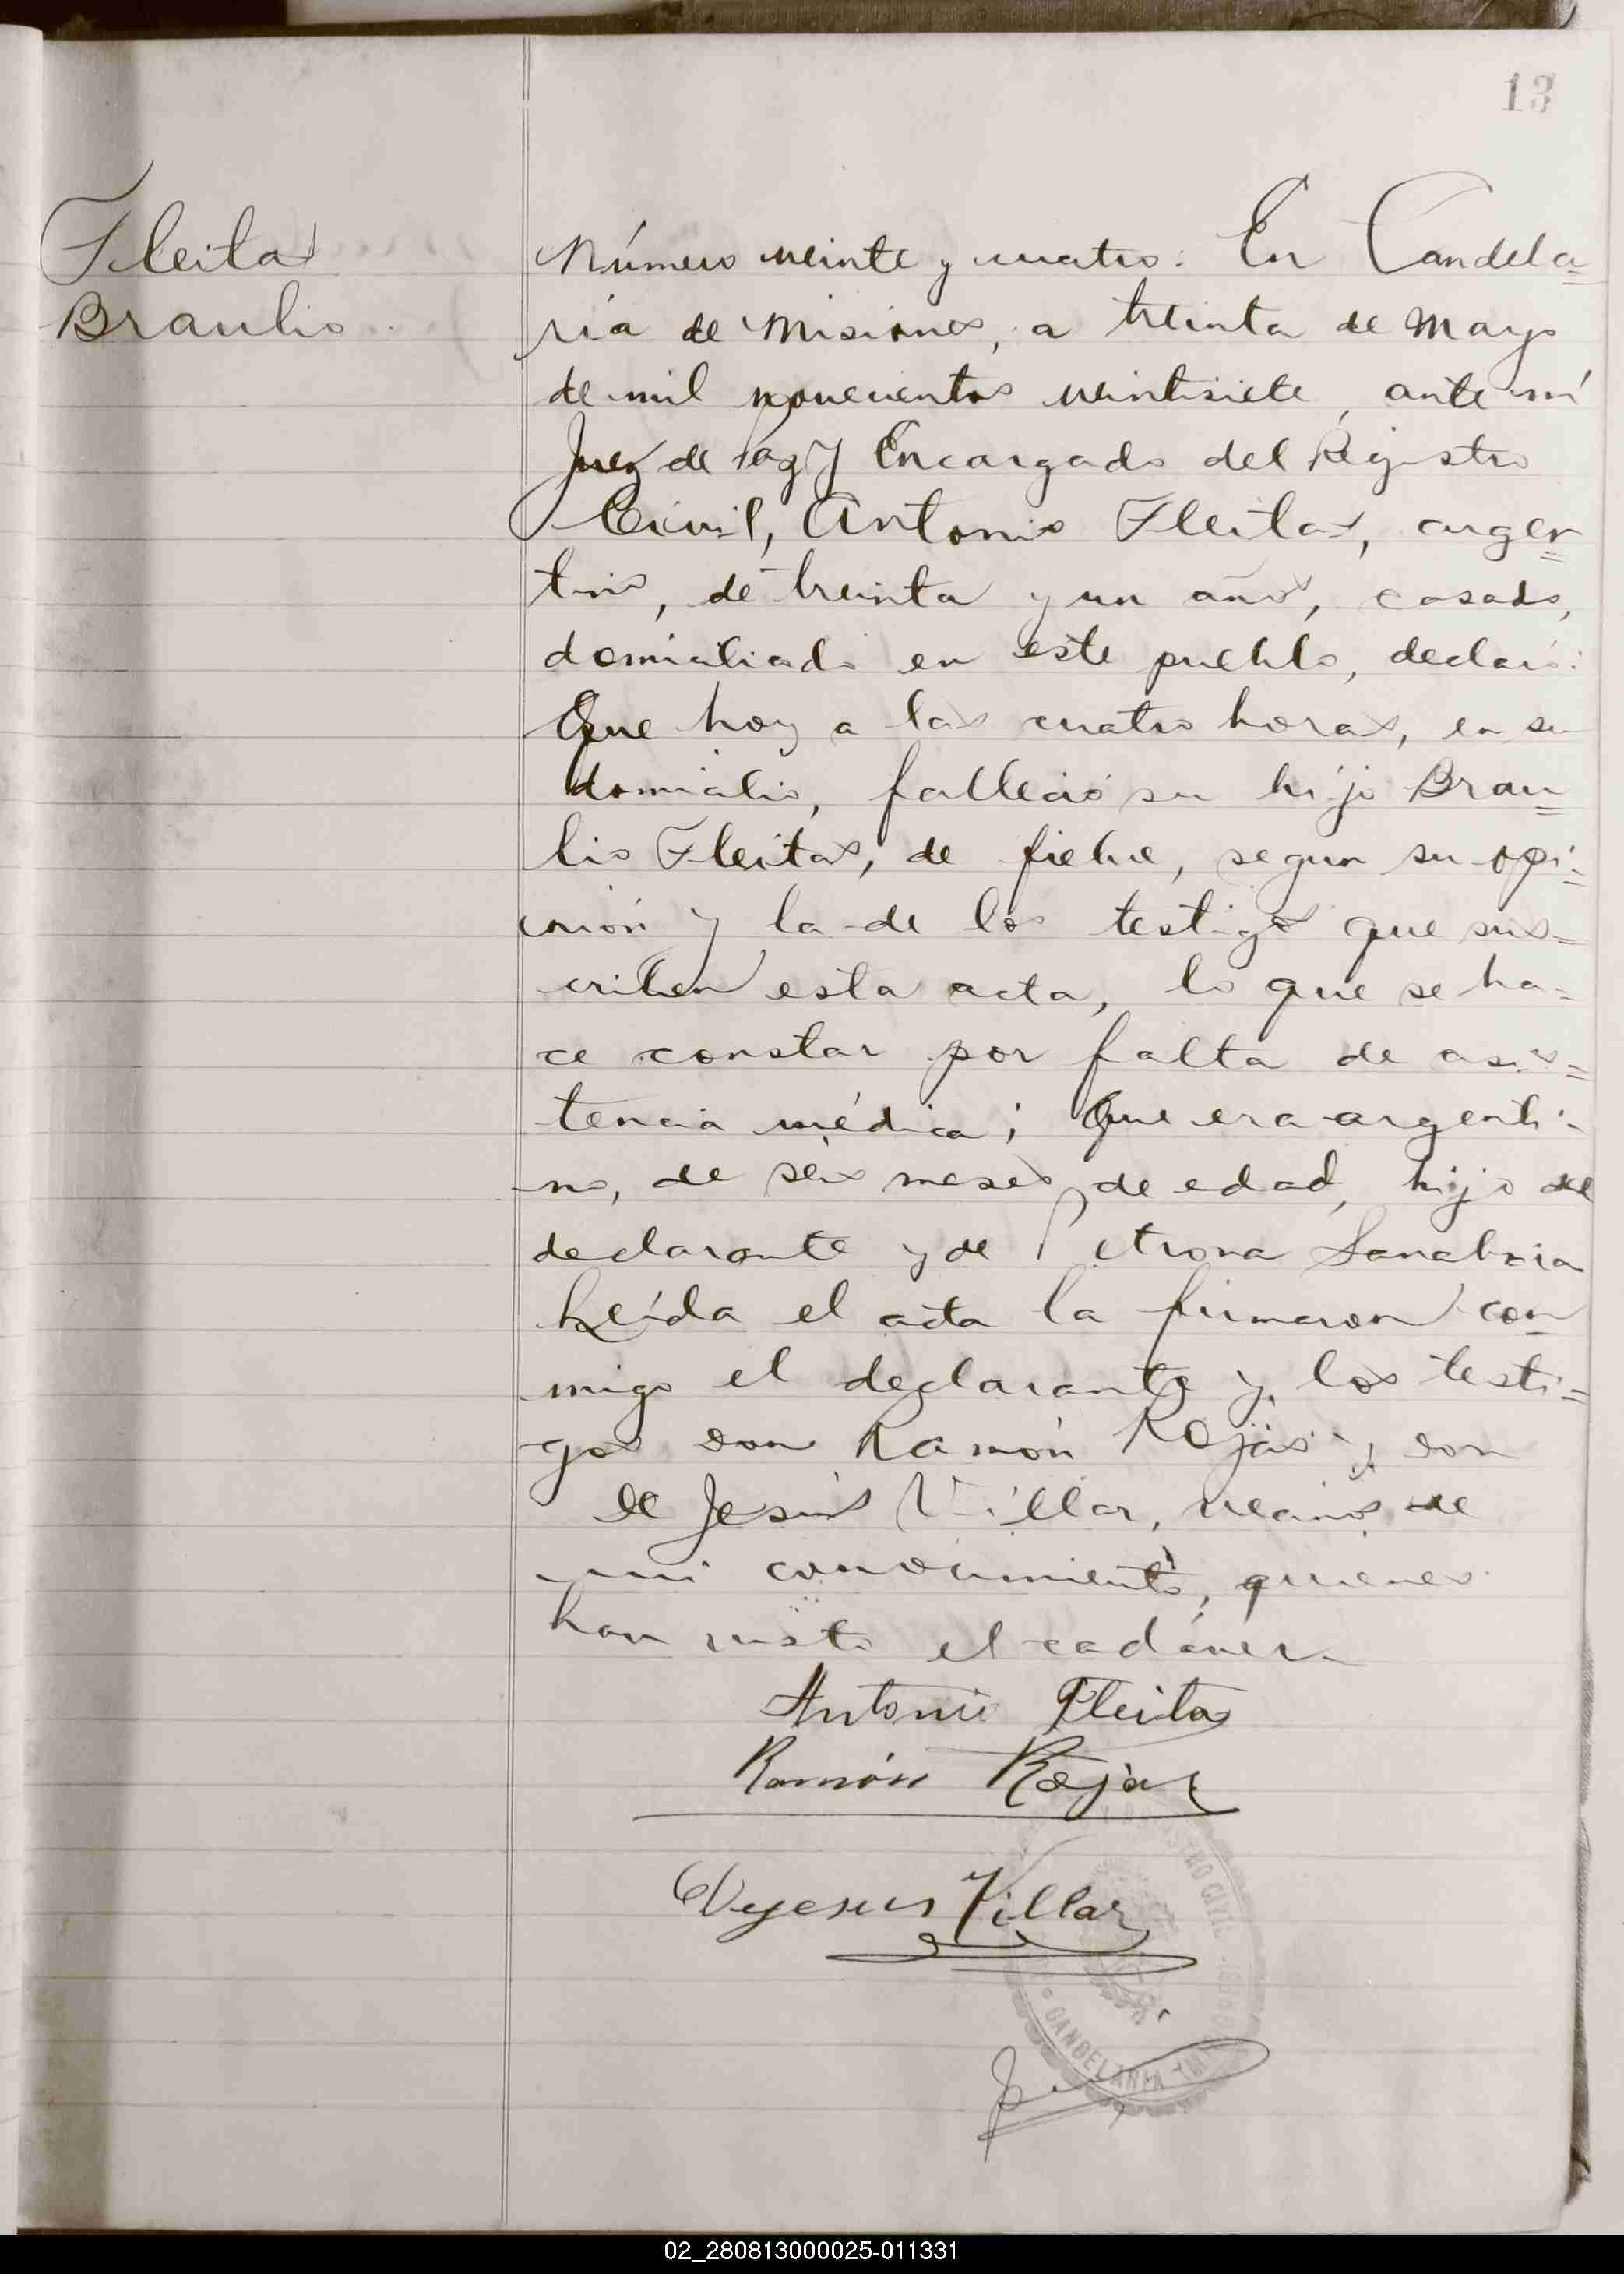 13
Fleitas
Braulio
Número veinte y cuatro: En Candela=
ria de Misiones, a treinta de Mayo
de mil novecientos veintisiete, ante mí
Juez de Paz y Encargado del Registro
Civil, Antonio Fleitas, argen=
tino, de treinta y un años, casado,
domiciliado en este pueblo, declaró:
Que hoy a las cuatro horas, en su
domicilio, falleció su hijo Brau=
lio Fleitas, de fiebre, segun su opi=
nión y la de los testigos que sus=
criben esta acta, lo que se ha=
ce constar por falta de asis=
tencia médica; Que era argenti-
no, de seis meses de edad, hijo del
declarante y de Petrona Sanabria
Leída el acta la firmaron con
migo el declarante y los testi=
gos don Ramón Rojas y don
De Jesús Villar, vecinos de
mi conocimiento, quienes
han visto el cadáver.
Antonio Fleitas
Ramón Rojas
Dejesus Villar
REGISTRO CIVIL
CANDELARIA
02_280813000025-011331